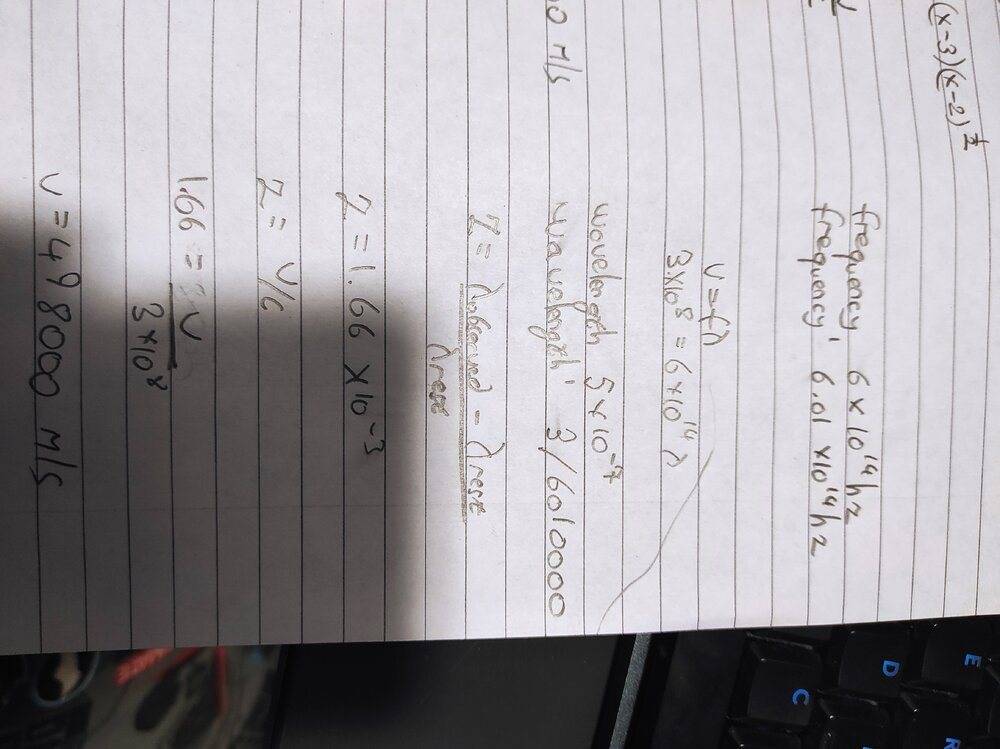 (x-3)(x-2)½
frequency 6 × 10¹⁴ hz
frequency' 6.01 × 10¹⁴ hz
v = fλ
3×10⁸ = 6×10¹⁴ λ
wavelength 5×10⁻⁷
wavelength' 3/6010000
0 M/s
Z = λobserved - λrest
λrest
Z = 1.66 × 10⁻³
Z = V/c
1.66 = V
3×10⁸
V = 498000 M/s
E
D
C